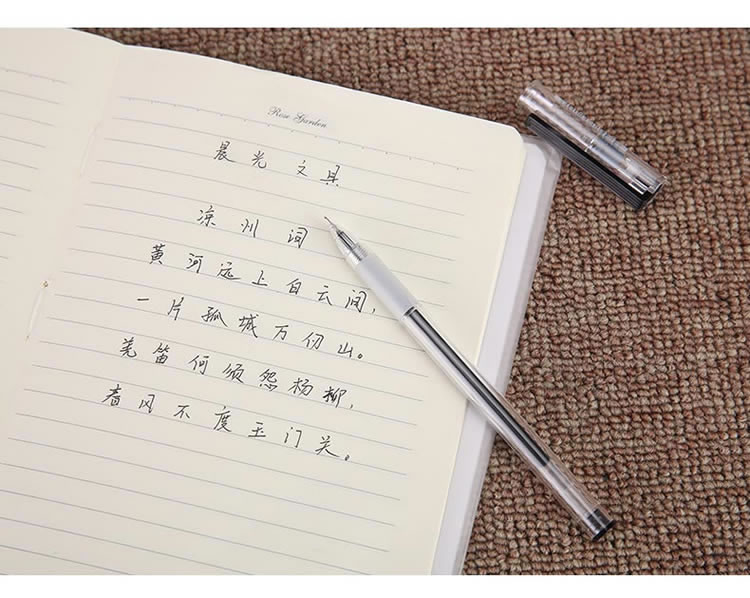 Rose Garden
晨光文具
凉州词
黄河远上白云间,
一片孤城万仞山。
羌笛何须怨杨柳,
春风不度玉门关。